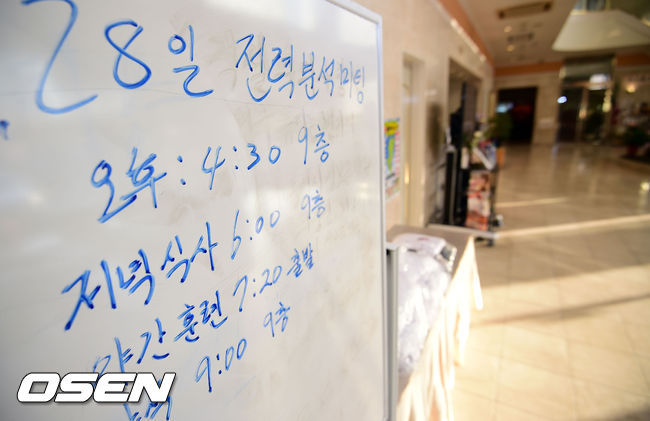 28일 전력분석미팅
오후 : 4:30 9층
저녁식사 6:00 9층
야간훈련 7:20 출발
9:00 9층
OSEN